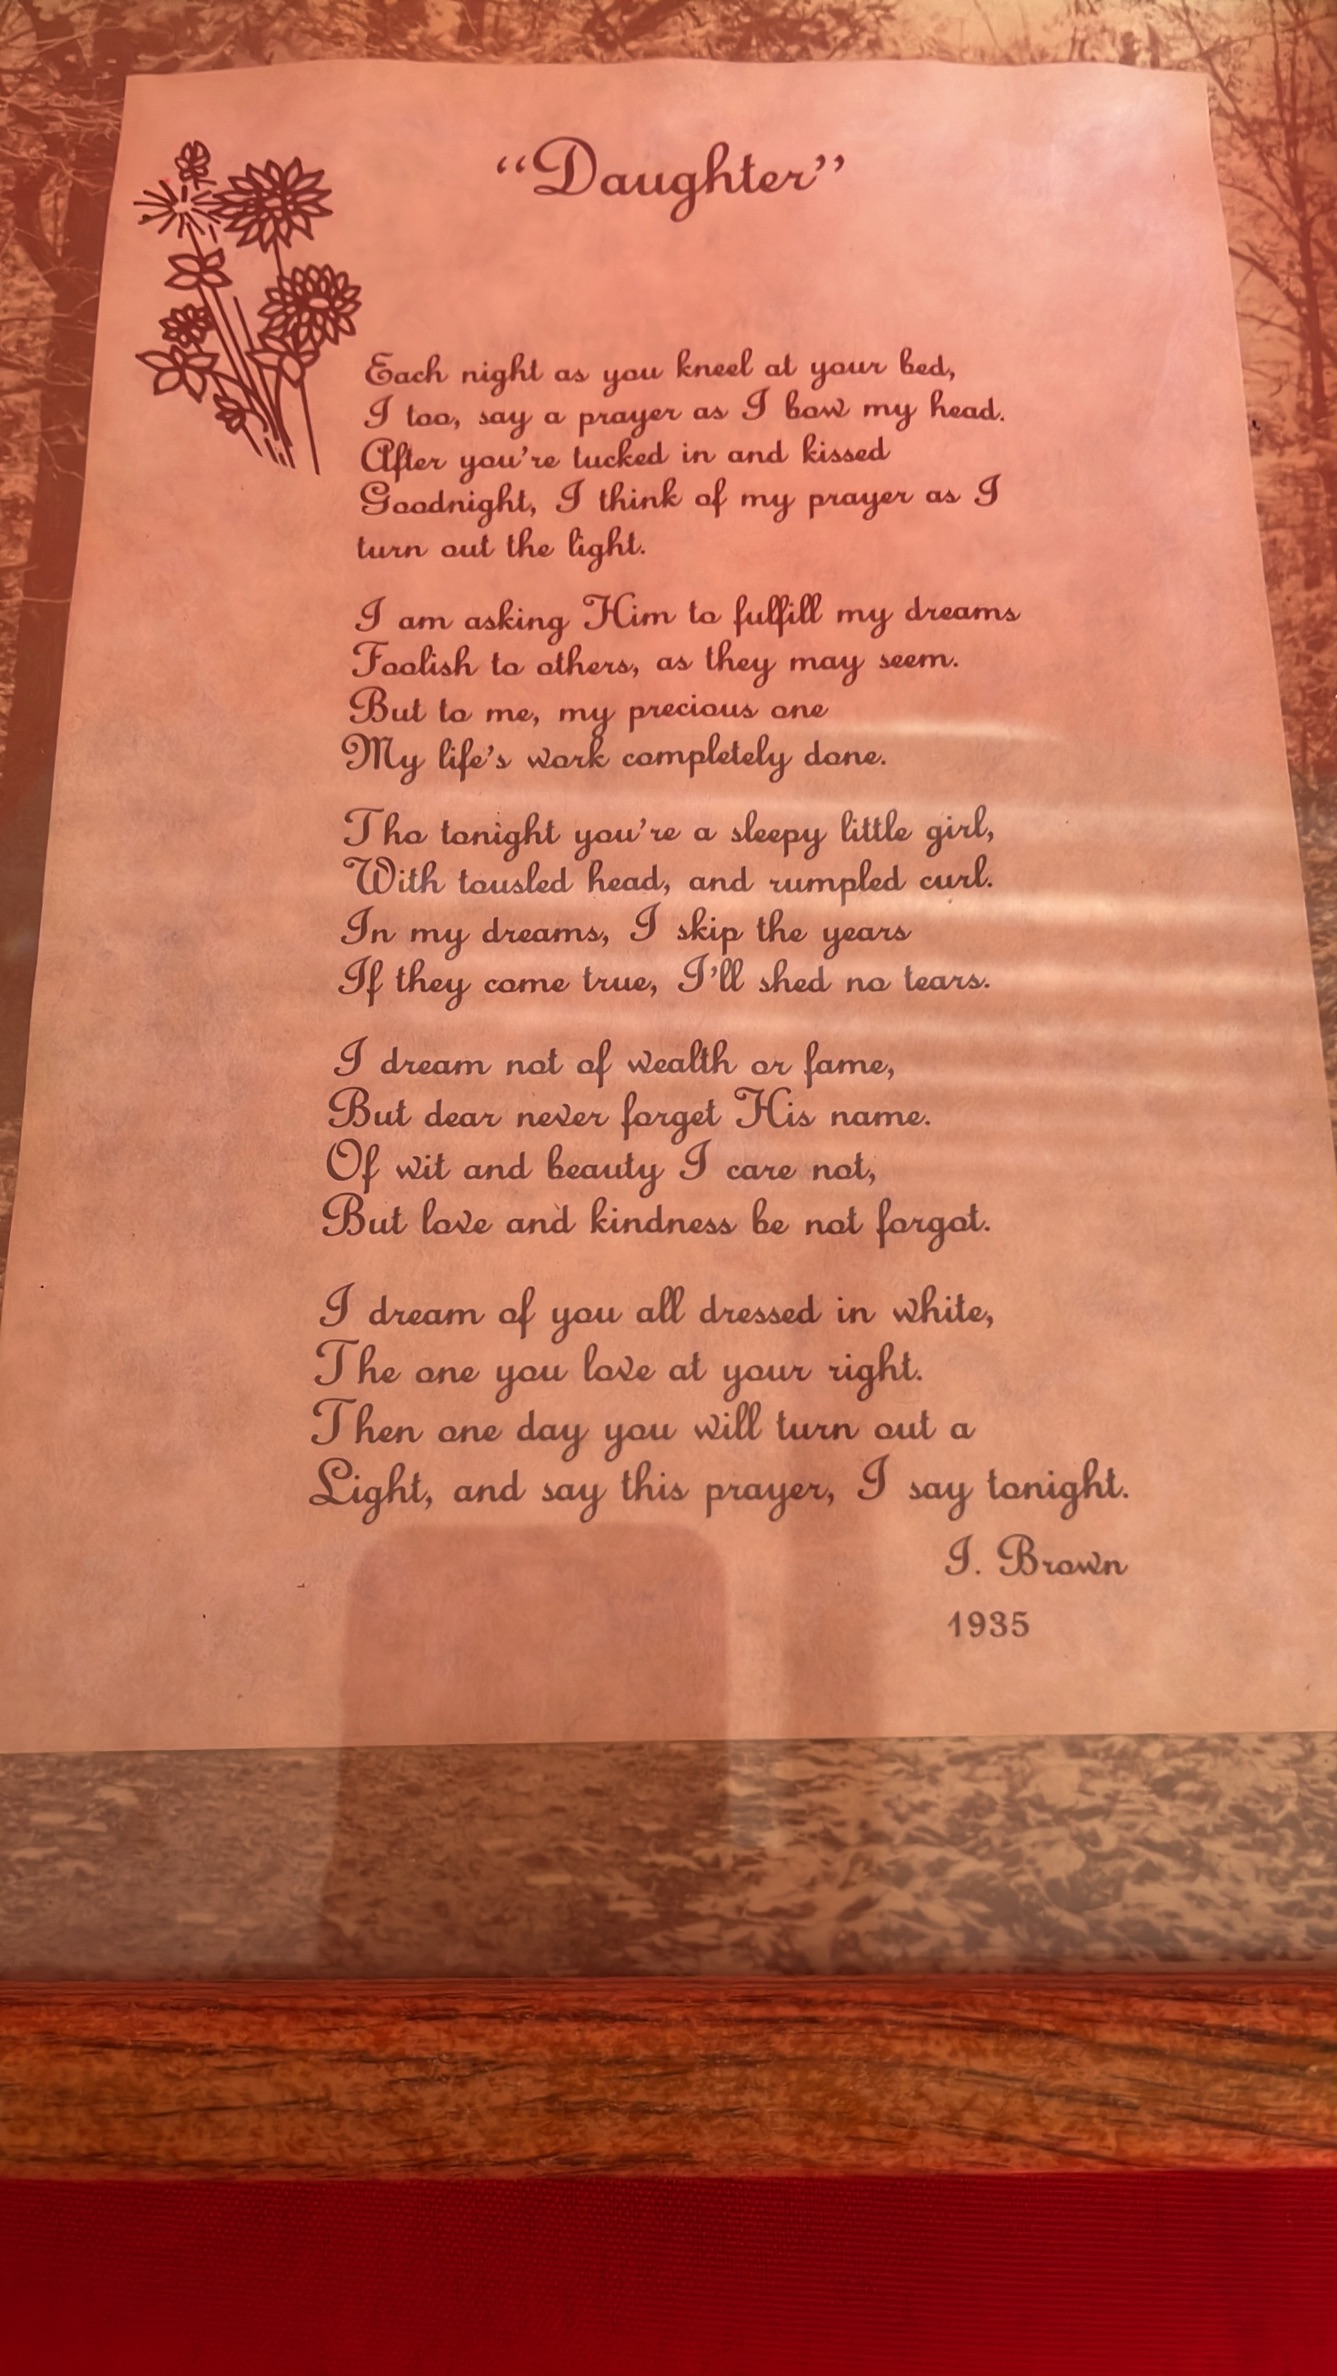 “Daughter”
Each night as you kneel at your bed,
I too, say a prayer as I bow my head.
After you’re tucked in and kissed
Goodnight, I think of my prayer as I
turn out the light.
I am asking Him to fulfill my dreams
Foolish to others, as they may seem.
But to me, my precious one
My life’s work completely done.
Tho tonight you’re a sleepy little girl,
With tousled head, and rumpled curl.
In my dreams, I skip the years
If they come true, I’ll shed no tears.
I dream not of wealth or fame,
But dear never forget His name.
Of wit and beauty I care not,
But love and kindness be not forgot.
I dream of you all dressed in white,
The one you love at your right.
Then one day you will turn out a
Light, and say this prayer, I say tonight.
I. Brown
1935